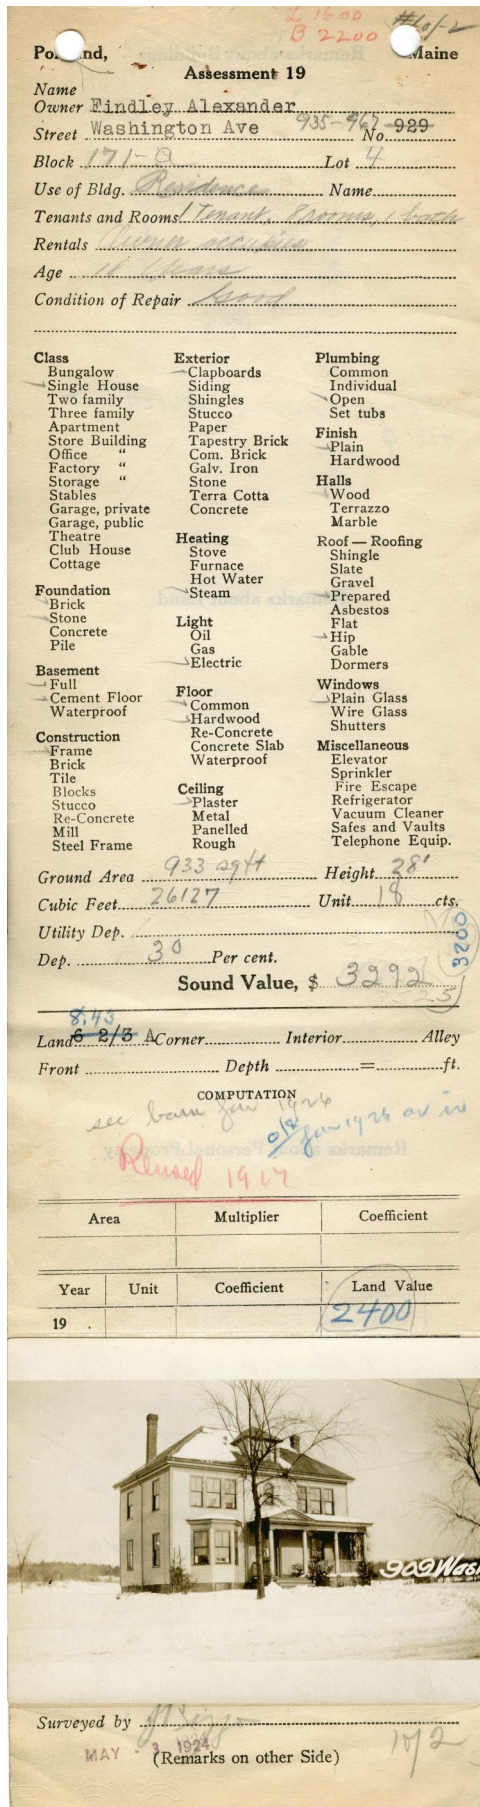 L 1600
B 2200
#1 of-2
Portland, Maine
Assessment 19
Name
Owner Findley Alexander
935-967
Street Washington Ave No. 929
Block 171-A Lot 4
Use of Bldg. Residence Name
Tenants and Rooms 1 Tenant, 8 rooms, 1 bath
Rentals Owner occupied
Age 10 years
Condition of Repair Good
Class
Bungalow
Single House
Two family
Three family
Apartment
Store Building
Office "
Factory "
Storage "
Stables
Garage, private
Garage, public
Theatre
Club House
Cottage
Foundation
Brick
Stone
Concrete
Pile
Basement
Full
Cement Floor
Waterproof
Construction
Frame
Brick
Tile
Blocks
Stucco
Re-Concrete
Mill
Steel Frame
Exterior
Clapboards
Siding
Shingles
Stucco
Paper
Tapestry Brick
Com. Brick
Galv. Iron
Stone
Terra Cotta
Concrete
Heating
Stove
Furnace
Hot Water
Steam
Light
Oil
Gas
Electric
Floor
Common
Hardwood
Re-Concrete
Concrete Slab
Waterproof
Ceiling
Plaster
Metal
Panelled
Rough
Plumbing
Common
Individual
Open
Set tubs
Finish
Plain
Hardwood
Halls
Wood
Terrazzo
Marble
Roof — Roofing
Shingle
Slate
Gravel
Prepared
Asbestos
Flat
Hip
Gable
Dormers
Windows
Plain Glass
Wire Glass
Shutters
Miscellaneous
Elevator
Sprinkler
Fire Escape
Refrigerator
Vacuum Cleaner
Safes and Vaults
Telephone Equip.
Ground Area 933 sq ft Height 28'
Cubic Feet 26127 Unit 18 cts.
Utility Dep.
3200
Dep. 30 Per cent.
Sound Value, $ 3292
8.43
Land 6 2/3 A Corner Interior Alley
Front Depth = ft.
COMPUTATION
see barn Jan 1926
Jan 1926
Revised 1927
Area Multiplier Coefficient
Year Unit Coefficient Land Value
19 2400
909 Wash
Surveyed by
MAY - 3 1924
(Remarks on other Side)
1 of 2